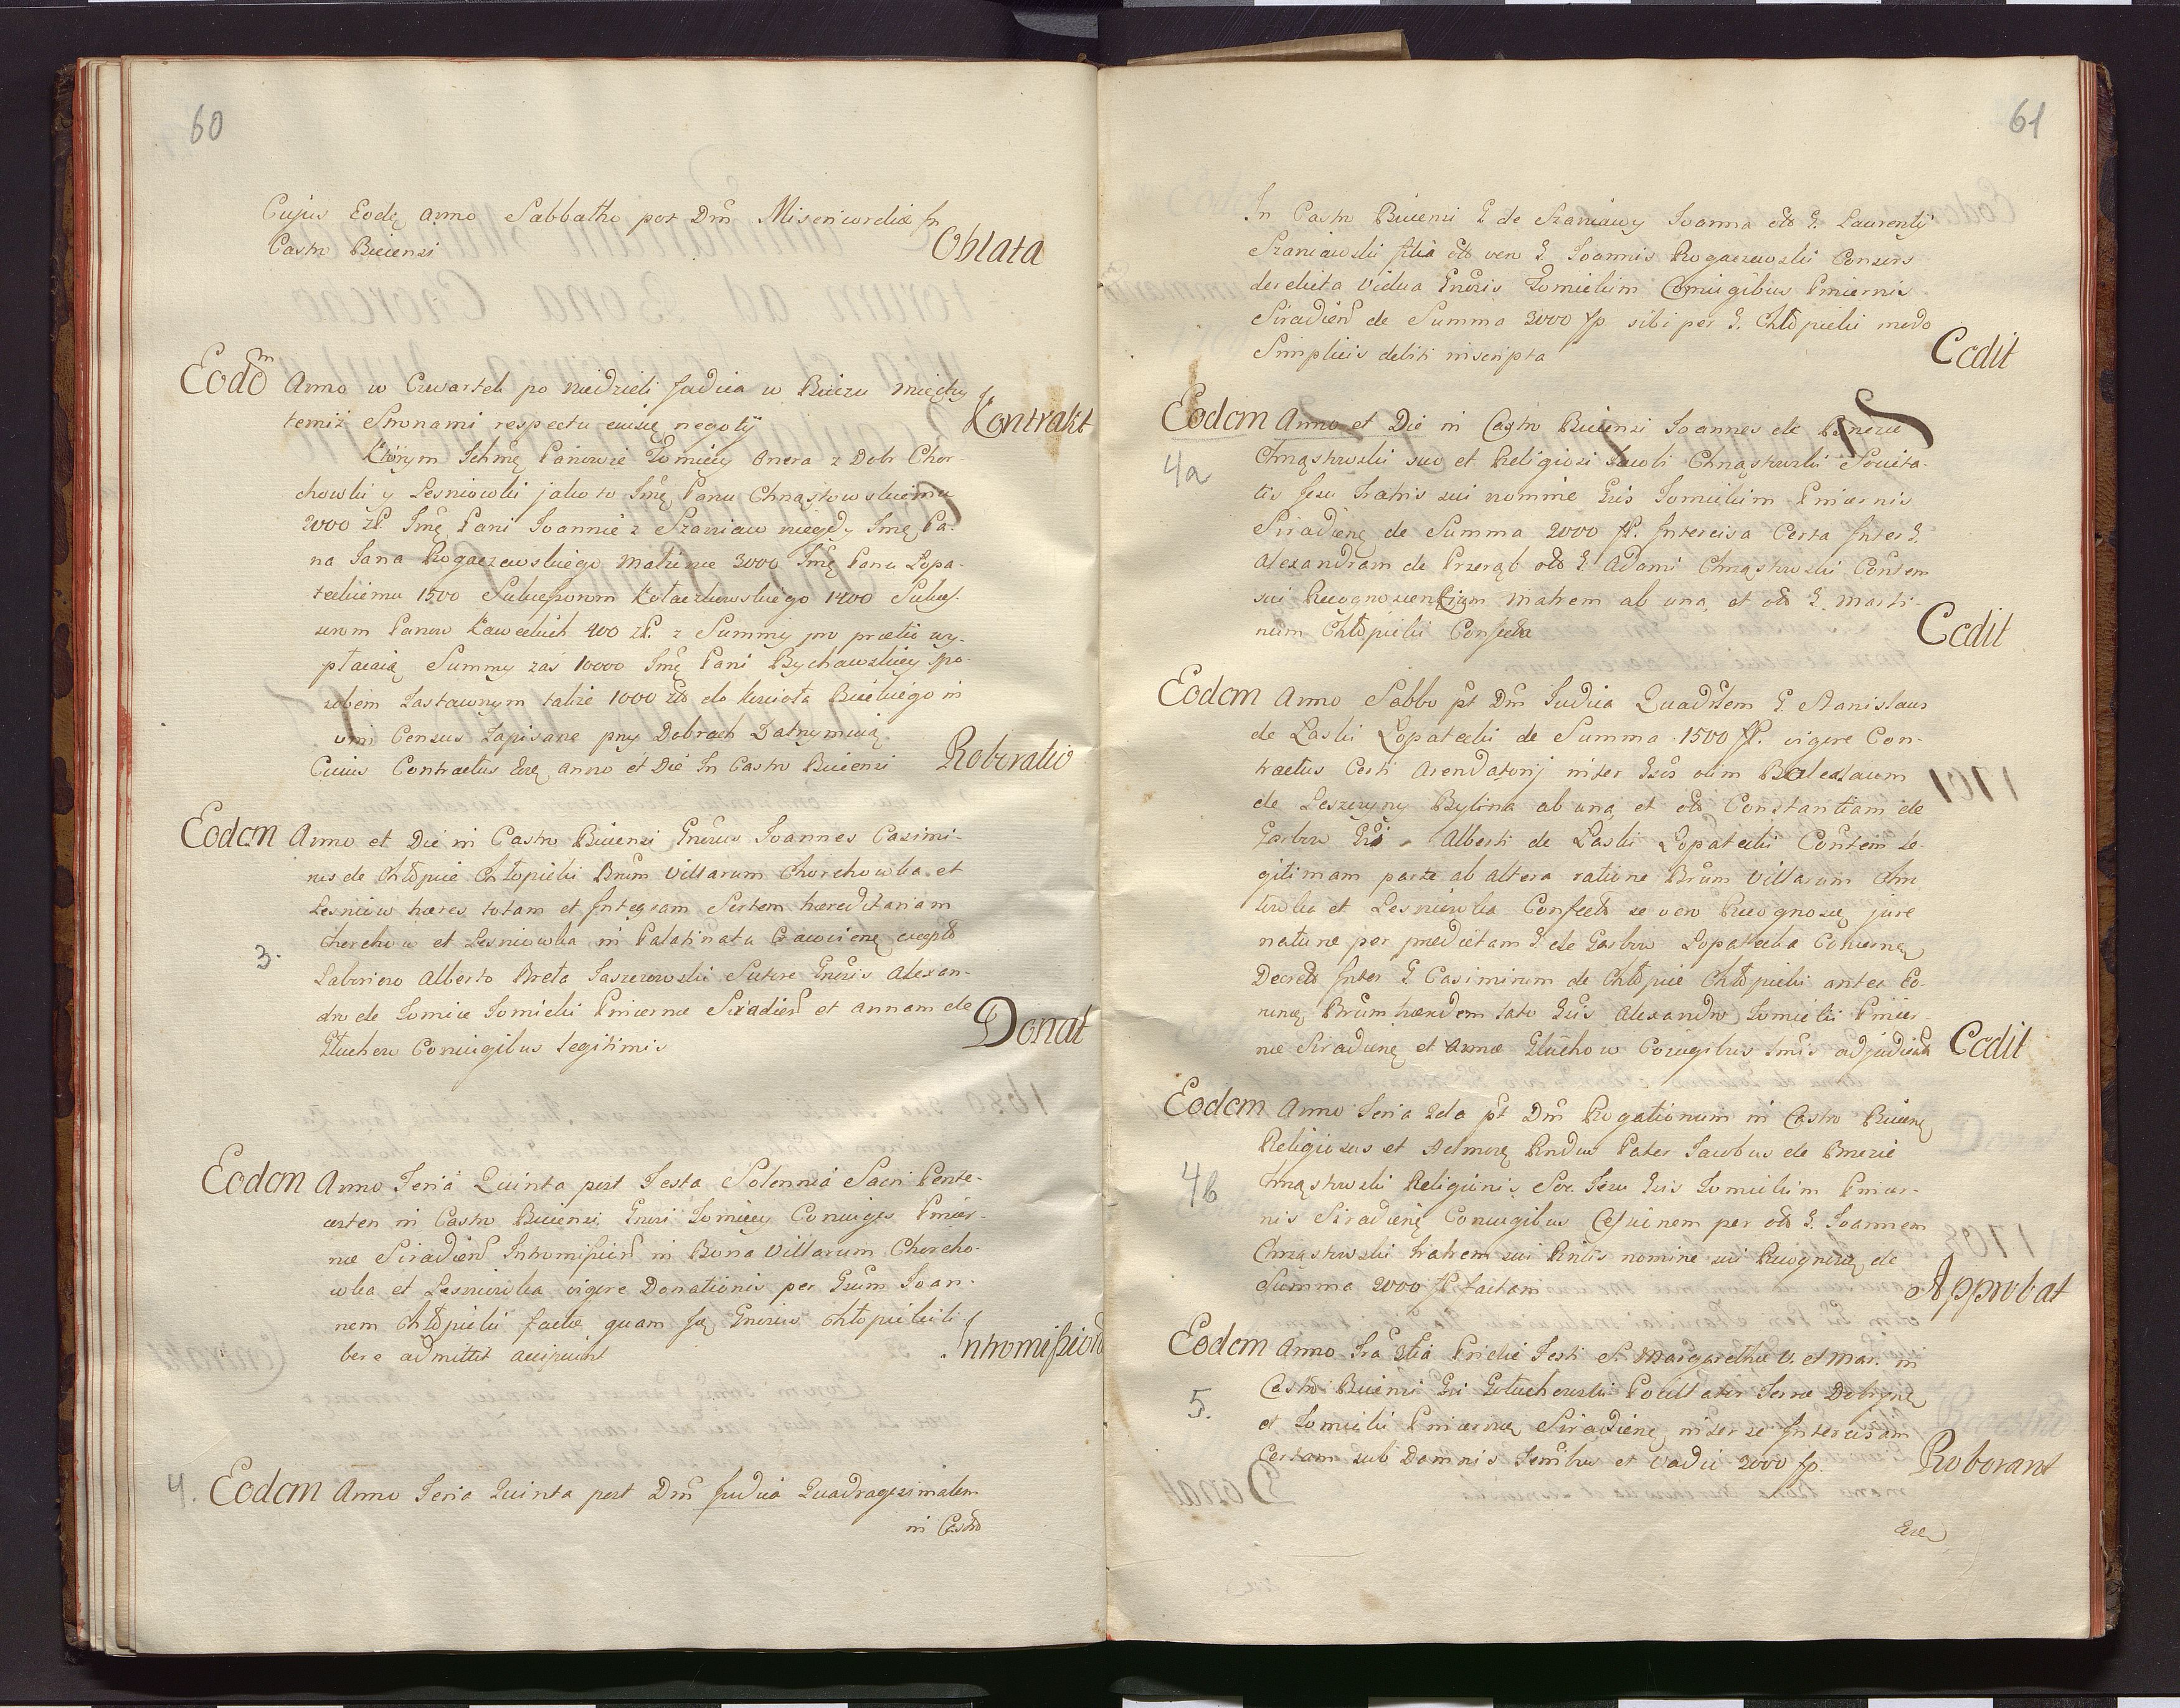 60
Cujus Eodę anno Sabbatho post Dm̃ Misericordiæ In
Castro Bieceñsi
Oblata
Eodm̃ Anno w Czwartek po niedzieli Judica w Bieczu między
temiż Stronami respectu eiusdę negotÿ
Kontrakt
Którym Ichmę Panowie Łomiccy onera z Dobr Chor-
chowki y Lesniowki jako to Imę Panu Chrząstowskiemu
2000 zł. Imę Pani Joannie z Szaniaw niegdy Imę Pa-
na Jana Rogaczewskiego małżonce 3000 Imę Panu Łopa-
teckiemu 1500 Sukcessorom Kołaczkowskiego 1400 Sukces-
sorom Panow Kaweckich 400 zł. z Summy pro pretio wy-
płacaią Summy zaś 10000 Imę Pani Bychawskiey spo-
sobem Zastawnym także 1000 do koscioła Bieckiego in
vim Census Zapisane przy Dobrach Zatrzymuią.
Cuius Contractus anno et Die In Castro Biecensi
Roboratio
Eodem Anno et Die in Castro Biecensi Gnẽrus Joannes Casimi-
rus de Chłopice Chłopicki Bnũm Villarum Chorchowka et
Lesniow hæres totam et Integram Sortem hæreditariam
Chorchow et Lesniowka in Palatinatu excepto
3.
Laborioso Alberto Breta Jaszczowski Sutore Gnẽris Alexan-
dro de Łomice Łomicki Pincernæ Siradień et annam de
Głuchow Coniugibus legitimis
Donat
Eodem Anno Feria Quinta post Festa Solennia Sacri Pente-
costen in Castro Biecensi Gnẽri Łomiccy Coniuges Pincer-
næ Siradień Intromissioń in Bona Villarum Chorcho-
wka et Lesniowka vigore Donationis per Gsũm Joan-
nem Chłopicki factæ, quam Gnẽrus Chłopicki li-
bere admittit accipiunt
Intromissioń
4. Eodem Anno Feria Quinta post Dm̃ Judica Quadragesimalem
in Castro
61
In Castro Biecensi G de Szaniawy Joanna G. Laurentÿ
Szaniawski filia vero G. Joannis Rogaczewski Consors
derelicta Vidua Gnẽris Łomickim Coniugibus Pincernis
Siradień de Summa 3000 fp sibi per G. Chłopicki modo
Simplicis debiti inscripta
Cedit
Eodem Anno et Die in Castro Biecensi Joannes de Brzezie
4a
Chrząstowski suo et Religiosi Jacobi Chrząstowski Societa-
tis Jesu Fratris sui nomine Gris Łomickim Pincernis
Siradienę de Summa 2000 fl. Intercisa Certa Inter G.
Alexandram de Przerąb G Adami Chrząstowski Consortem
sui Recognoscentium matrem ab una, et G. Marti-
num Chłopicki Confecta
Cedit
Eodem Anno Sabbo pt Dm̃ Judica Quadlem G. Stanislaus
de Laski Łopatecki de Summa 1500 fl. vigore Con-
tractus Certi Arendatorÿ inter Gsos olim
de Leszczyny Bylina ab una, et Constantiam de
Garbow Gsi Alberti de Laski Łopatecki Consortem le-
gitimam parte ab altera ratione Bnũm Villarum
et Lesniowka Confecto se vero Recognoscę jure
naturæ per prædictam G. de Garbow Łopatecka
Decreto Inter G Casimirum de Chłopice Chłopicki antea Eo-
rumdę Bnũm hæredem lato Gris Alexandro Łomicki Pincer-
næ Siradienę et Annæ Głuchow Coniugibus adjudicata
Cedit
Eodem Anno Feria 2da pt Dm̃ Rogationum in Castro Biecenę
Religiosus et Admodę Rndus Pater Jacobus de Brzezie
4b
Chrząstowski Religionis Soc. Jesu Gris Łomickim Pincer-
nis Siradienę Coniugibus Cessionem per G. Joannem
Chrząstowski Fratrem sui nomine sui de
Summa 2000 fl. factam
Approbat
Eodem Anno Fra 3tia Pridie Festi S. Margarethæ V. et Mar. in
Castro Biecensi Gri Głuchowski Pocillator Terræ Dobrznę
5.
et Łomicki Pincerna Siradienę inter se Intercisam
Certam sub Damnis Terribus et Vadii 2000 fp.
Roborant